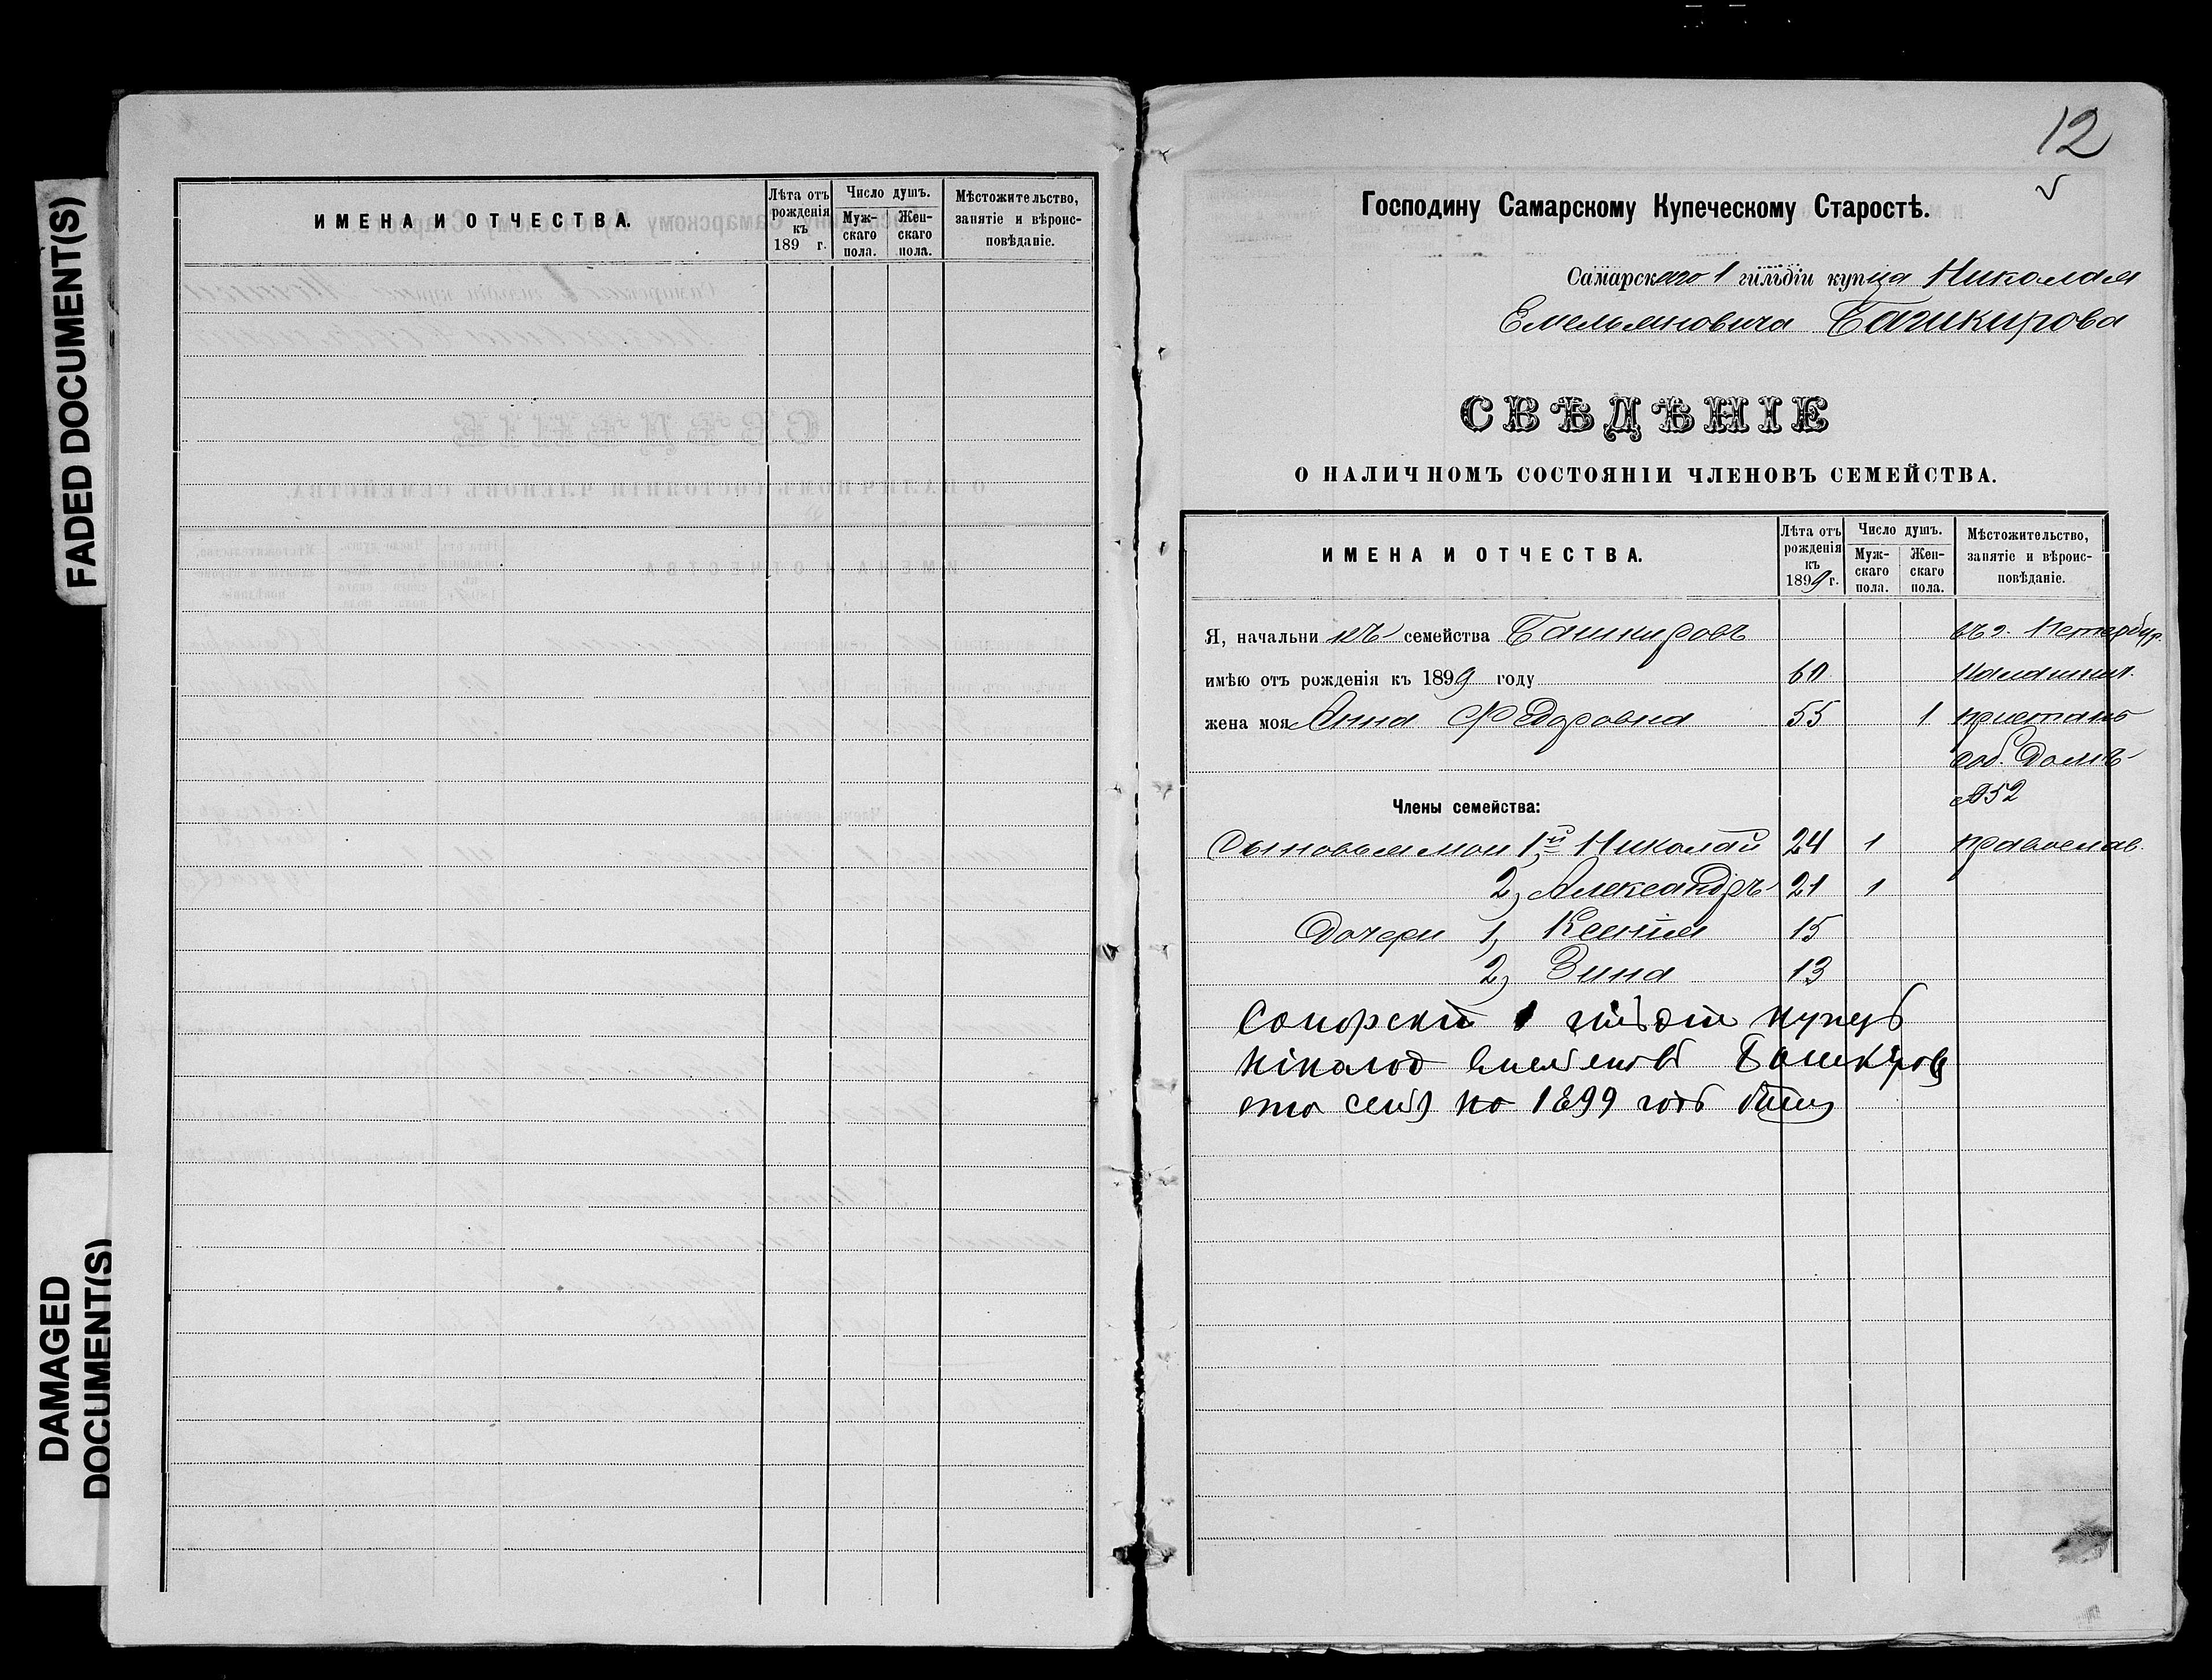 FADED DOCUMENT(S)
DAMAGED
DOCUMENT(S)
ИМЕНА И ОТЧЕСТВА.
Лѣта отъ рожденія къ 189 г.
Число душъ.
Мужскаго пола.
Женскаго пола.
Мѣстожительство, занятіе и вѣроисповѣданіе.
12
Господину Самарскому Купеческому Старостѣ.
Самарскаго 1 гильдіи купца Николая
Емельяновича Башкирова
СВѢДѢНІЕ
О НАЛИЧНОМЪ СОСТОЯНІИ ЧЛЕНОВЪ СЕМЕЙСТВА.
ИМЕНА И ОТЧЕСТВА.
Лѣта отъ рожденія къ 1899 г.
Число душъ.
Мужскаго пола.
Женскаго пола.
Мѣстожительство, занятіе и вѣроисповѣданіе.
Я, начальникъ семейства Башкировъ въ г. Петербур.
имѣю отъ рожденія къ 1899 году 60 Калашник.
жена моя Анна Федоровна 55 1 пристань
соб. домъ
№52
Члены семейства:
Сыновья мои 1й Николай 24 1 православ.
2, Александръ 21 1
Дочери 1, Ксенія 15
2, Зина 13
Самарски 1 купец
Башкиров
1899